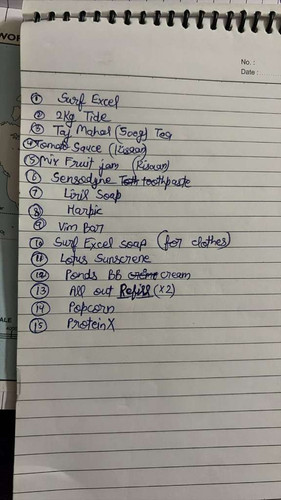 No. :
Date :
① Surf Excel
② 2kg Tide
③ Taj Mahal (500g) Tea
④ Tomato Sauce (Kissan)
⑤ Mix Fruit jam (Kissan)
⑥ Sensodyne toothpaste
⑦ Liril Soap
⑧ Harpic
⑨ Vim Bar
⑩ Surf Excel soap (for clothes)
⑪ Lotus Sunscrene
⑫ Ponds BB cream
⑬ All out Refill (x2)
⑭ Popcorn
⑮ ProteinX